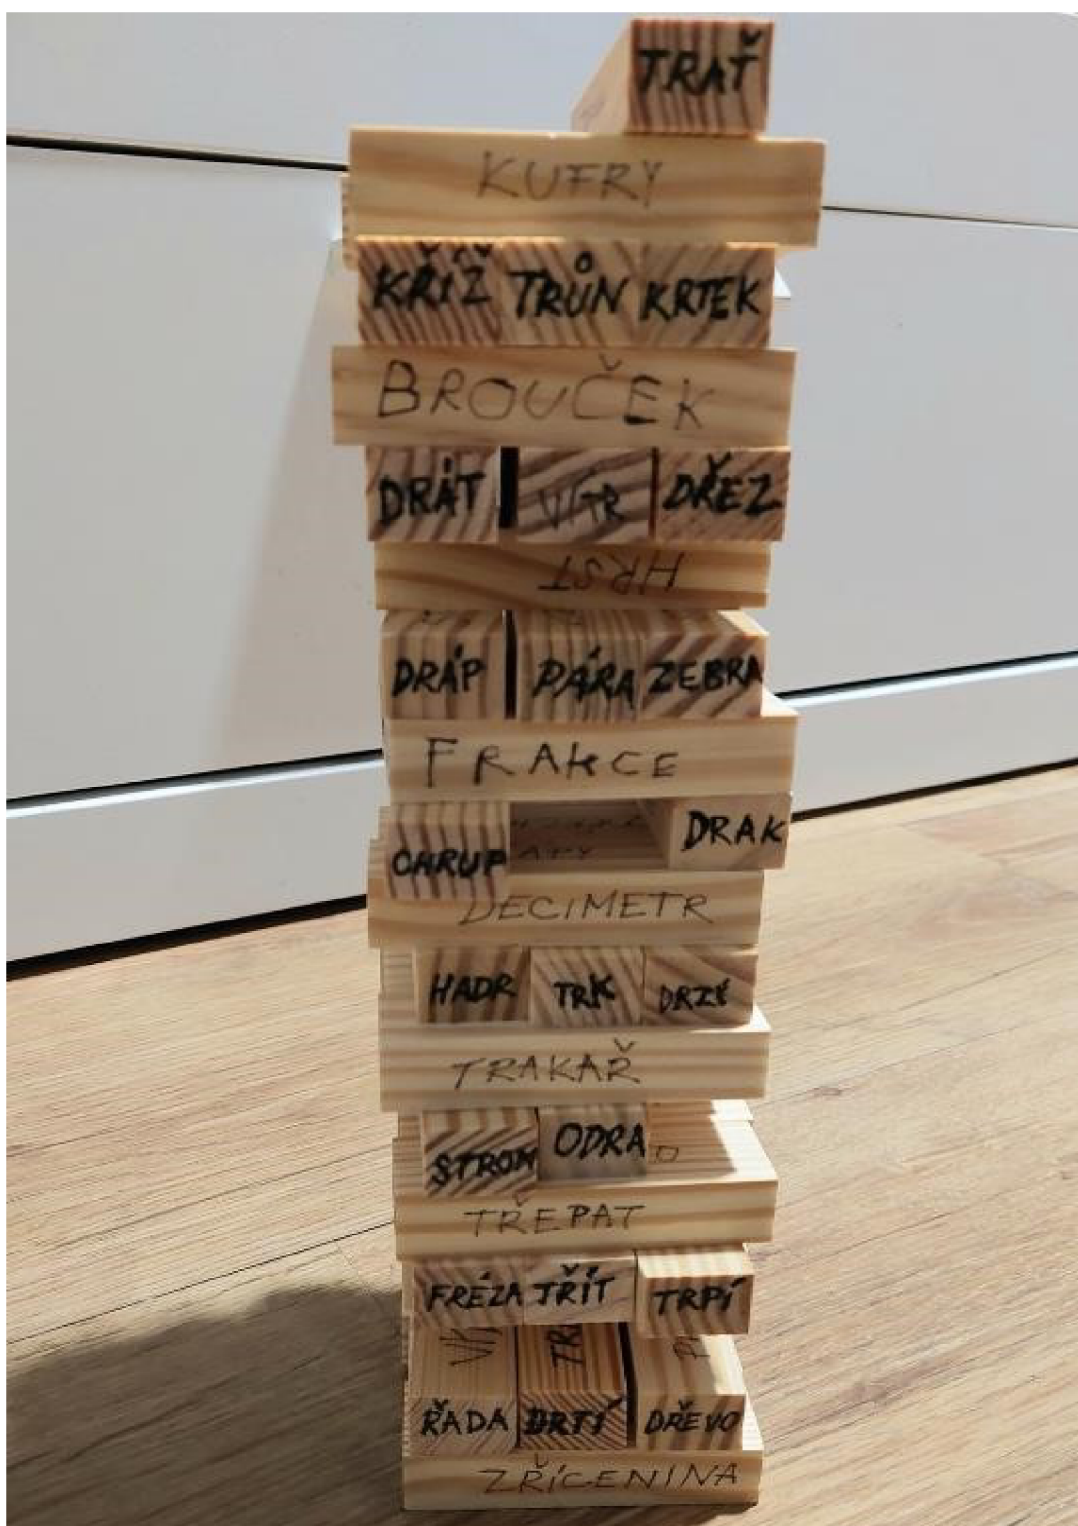 TRAŤ
KUFRY
KŘÍŽ TRŮN KRTEK
BROUČEK
DRÁT VÍTR DŘEZ
HRST
DRÁP PÁRA ZEBRA
FRAKCE
CHRUP DRAK
DECIMETR
HADR TRK DRZÝ
TRAKAŘ
STROM ODRA
TŘEPAT
FRÉZA TŘÍT TRPÍ
ŘADA DRTÍ DŘEVO
ZŘÍCENINA